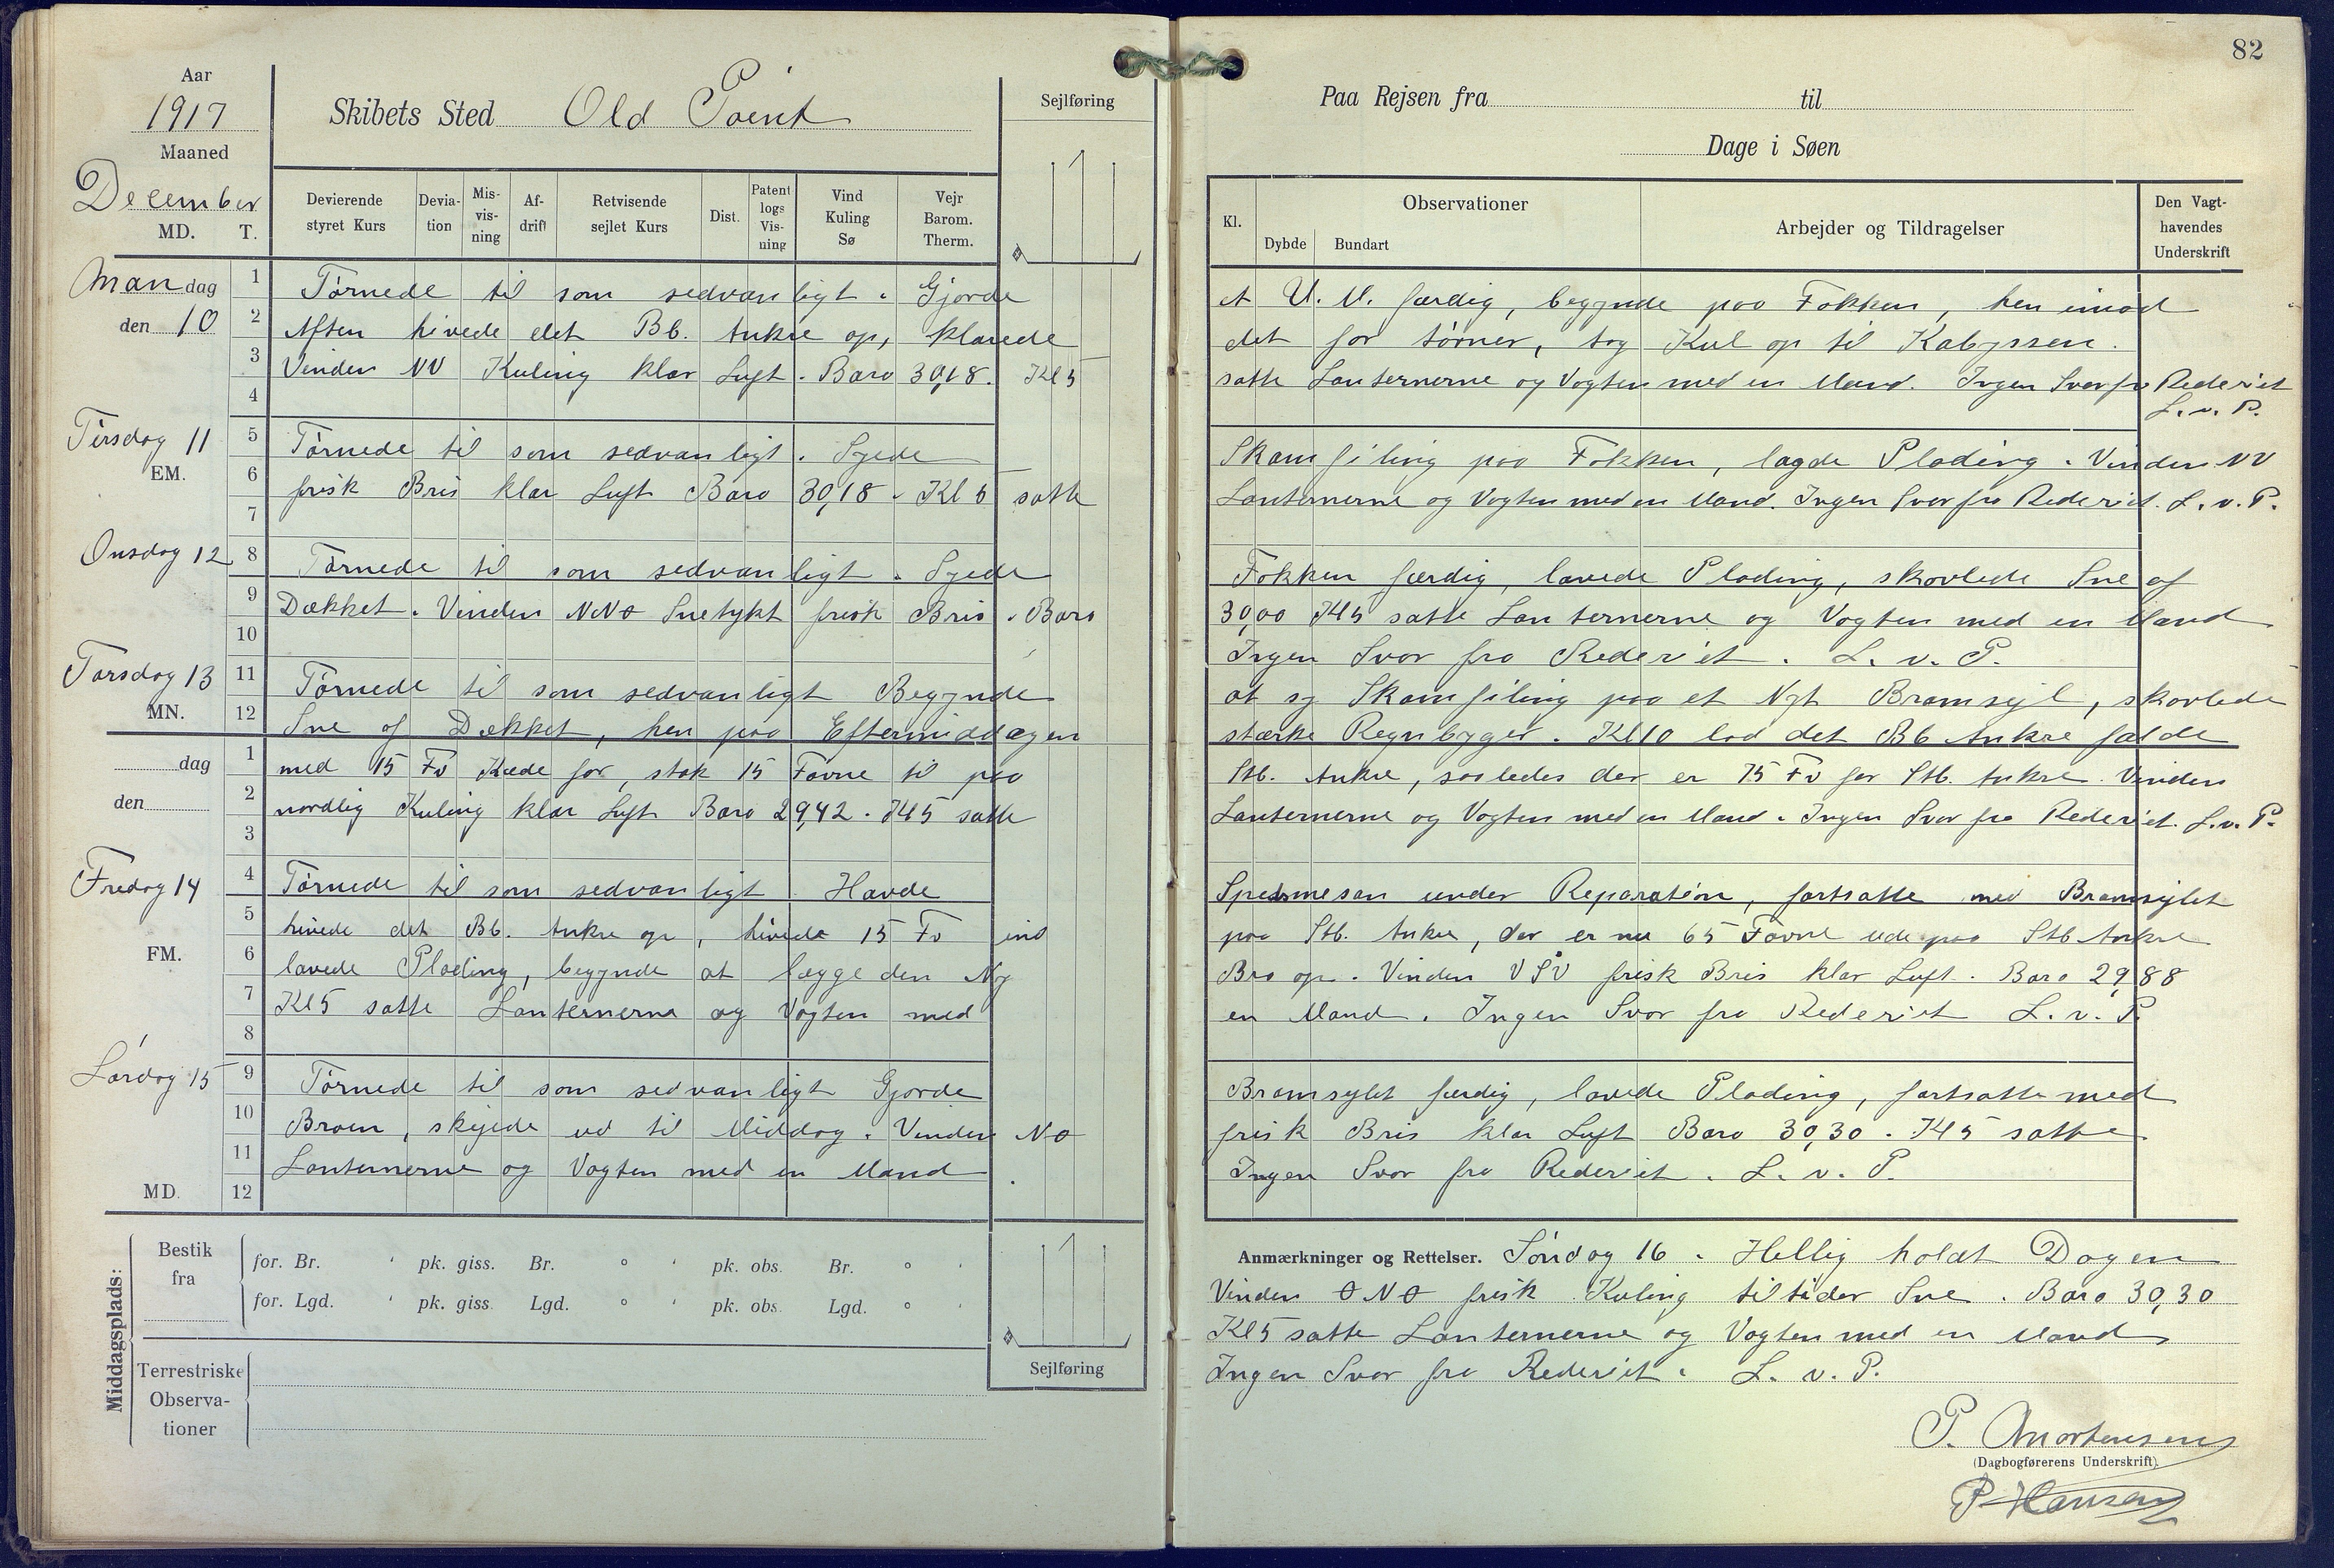 82
Aar
1917
Skibets Sted Old Point
Sejlføring
Paa Rejsen fra til
Maaned
Dage i Søen
December
MD. T.
Devierende styret Kurs
Devia-tion
Mis-vis-ning
Af-drift
Retvisende sejlet Kurs
Dist.
Patent logs Vis-ning
Vind Kuling Sø
Vejr Barom. Therm.
Kl.
Observationer
Dybde Bundart
Arbejder og Tildragelser
Den Vagt-havendes Underskrift
Mandag den 10
1 2 3 4
Törnede til som sedvanligt. Gjorde et U. M. færdig, begynde paa Fokken, hen imod
Aften hivede det Bb. Anker op, klarede det for törner, tog Kul op til Kabyssen.
Vinden NV Kuling klar Luft. Baro 30,18. Kl 5 satte Lanternerne og Vagten med en Mand. Ingen Svar fra Rederiet
L. v. P.
Tirsdag 11
EM.
5 6 7
Törnede til som sedvanligt. Syede Skamfiling paa Fokken, lagde Plading. Vinden NV
frisk Bris klar Luft Baro 30,18. Kl 5 satte Lanternerne og Vagten med en Mand. Ingen Svar fra Rederiet. L. v. P.
Onsdag 12
8 9 10
Törnede til som sedvanligt. Syede Fokken færdig, lavede Plading, skovlede Sne af
Dækket. Vinden NNO Snetykt frisk Bris. Baro 30,00 Kl 5 satte Lanternerne og Vagten med en Mand
Ingen Svar fra Rederiet. L. v. P.
Torsdag 13
MN.
11 12
Törnede til som sedvanligt Begynde at sy Skamfiling paa et Nyt Bramsejl, skovlede
Sne af Dækket, hen paa Eftermiddagen stærke Regnbyger. Kl 10 lod det Bb Anker falde
dag den
1 2 3
med 15 Fv Kæde for, stak 15 Favne til paa Stb. Anker, saaledes der er 75 Fv for Stb. Anker. Vinden
nordlig Kuling klar Luft Baro 29,42. Kl 5 satte Lanternerne og Vagten med en Mand. Ingen Svar fra Rederiet. L. v. P.
Fredag 14
FM.
4 5 6 7 8
Törnede til som sedvanligt. Havde mesan under Reparation, fortsatte med Bramsejlet
hivede det Bb. Anker op, hivede 15 Fv ind paa Stb. Anker, der er nu 65 Favne ude paa Stb Anker
lavede Plading, begynde at lægge den Ny Bro op. Vinden VSV frisk Bris klar Luft. Baro 29,88
Kl 5 satte Lanternerne og Vagten med en Mand. Ingen Svar fra Rederiet L. v. P.
Lördag 15
MD.
9 10 11 12
Törnede til som sedvanligt Gjorde Bramsejlet færdig, lavede Plading, fortsatte med
Broen, skejede ud til Middag. Vinden NO frisk Bris klar Luft Baro 30,30. Kl 5 satte
Lanternerne og Vagten med en Mand. Ingen Svar fra Rederiet. L. v. P.
Middagsplads:
Bestik fra
for. Br. ' pk. giss. Br. ° ' pk. obs. Br. ° '
for. Lgd. ' pk. giss. Lgd. ° ' pk. obs. Lgd. ° '
Terrestriske Observa-tioner
Sejlføring
Anmærkninger og Rettelser. Söndag 16. Hellig holdt Dagen
Vinden ONO frisk Kuling tiltider Sne. Baro 30,30
Kl 5 satte Lanternerne og Vagten med en Mand
Ingen Svar fra Rederiet. L. v. P.
P. Mortensen
(Dagbogførerens Underskrift).
P Hansen